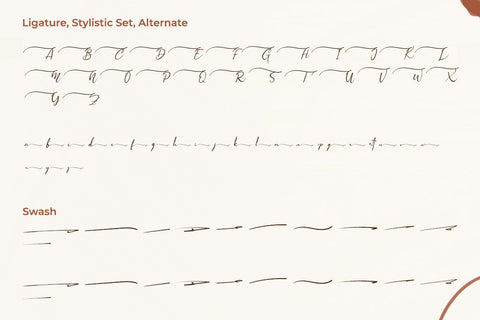 Ligature, Stylistic Set, Alternate
A B C D E F G H I J K L
M N O P Q R S T U V W X
Y Z
a b c d e f g h i j k l n n p q r st u v w
x y z
Swash